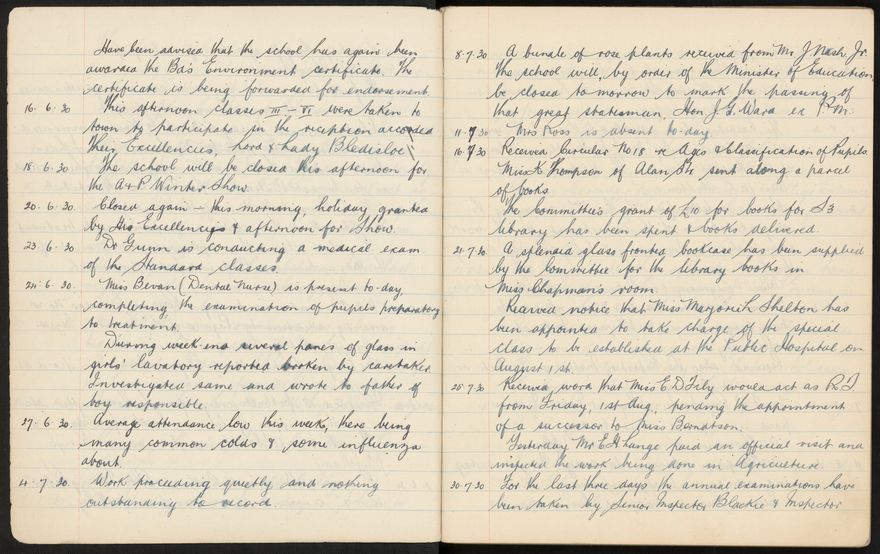 Have been advised that the school has again been
awarded the Bd's Environment certificate. The
certificate is being forwarded for endorsement
16. 6. 30 This afternoon classes III – VI were taken to
town to participate in the reception accorded
Their Excellencies, Lord & Lady Bledisloe
18. 6. 30 The school will be closed this afternoon for
the A & P Winter Show.
20. 6. 30 Closed again – this morning, holiday granted
by His Excellency & afternoon for Show.
23. 6. 30 Dr Gunn is conducting a medical exam
of the Standard classes
24. 6. 30. Miss Bevan (Dental Nurse) is present to-day
completing the examination of pupils preparatory
to treatment.
During week-end several panes of glass in
girls' lavatory reported broken by caretaker
Investigated same and wrote to father of
boy responsible
27. 6. 30. Average attendance low this week, there being
many common colds & some influenza
about.
4. 7. 30. Work proceeding quietly and nothing
outstanding to record.
8. 7. 30 A bundle of rose plants received from Mr J Nash Jr.
The school will, by order of the Minister of Education
be closed to-morrow to mark the passing of
that great statesman, Hon J. G. Ward ex P.M.
11. 7 30 Miss Ross is absent to-day
16. 7 30 Received Circular No 18 re Ages & Classification of Pupils
Miss K Thompson of Alan St sent along a parcel
of books
The Committee's grant of £10 for books for S3
library has been spent & books delivered.
21. 7. 30. A splendid glass fronted bookcase has been supplied
by the Committee for the library books in
Miss Chapman's room.
Received notice that Miss Marjorie H Shelton has
been appointed to take charge of the special
class to be established at the Public Hospital on
August 1st.
25. 7. 30 Received word that Miss E. D would act as
from Friday, 1st Aug., pending the appointment
of a successor to Miss Berndtson.
Yesterday Mr E H Lange paid an official visit and
inspected the work being done in Agriculture.
30. 7. 30 For the last three days the annual examinations have
been taken by Senior Inspector Blackie & Inspector